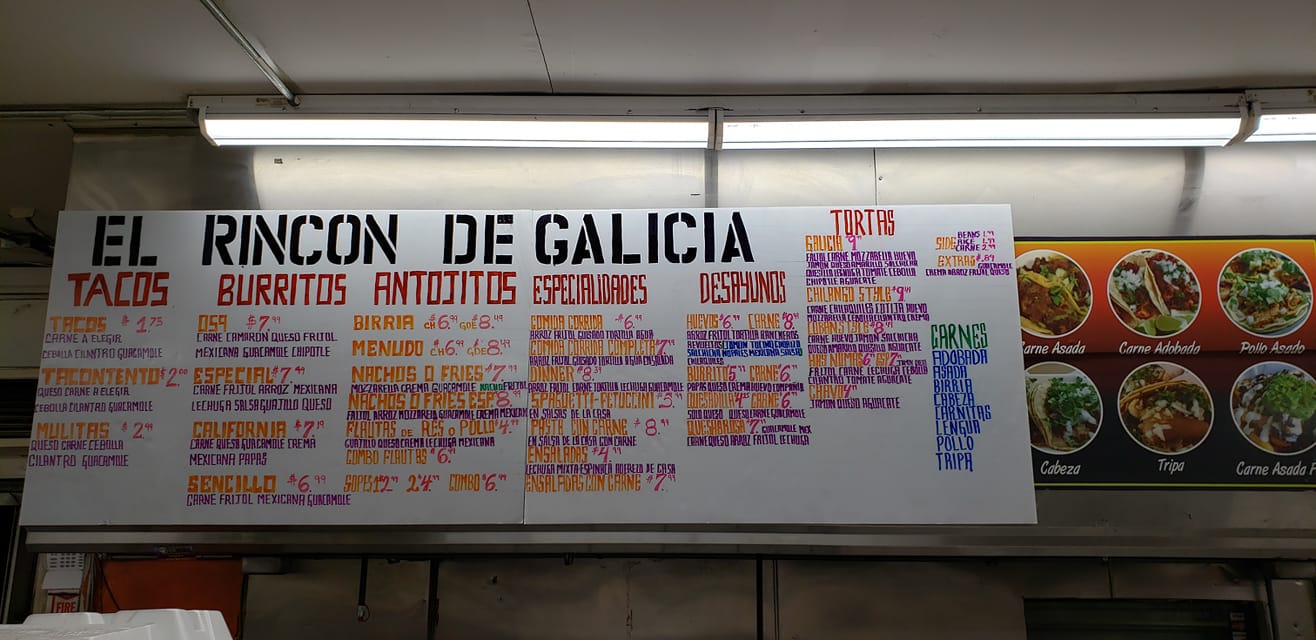 EL RINCON DE GALICIA
TACOS
TACOS $1.75
CARNE A ELEGIR
CEBOLLA CILANTRO GUACAMOLE
TACONTENTO $2.00
QUESO CARNE A ELEGIR
CEBOLLA CILANTRO GUACAMOLE
MULITAS $2.99
QUESO CARNE CEBOLLA
CILANTRO GUACAMOLE
BURRITOS
OSA $7.99
CARNE CAMARON QUESO FRIJOL
MEXICANA GUACAMOLE CHIPOTLE
ESPECIAL $7.49
CARNE FRIJOL ARROZ MEXICANA
LECHUGA SALSA GUAJILLO QUESO
CALIFORNIA $7.19
CARNE QUESO GUACAMOLE CREMA
MEXICANA PAPAS
SENCILLO $6.99
CARNE FRIJOL MEXICANA GUACAMOLE
ANTOJITOS
BIRRIA CH $6.99 GDE $8.49
MENUDO CH $6.99 GDE $8.49
NACHOS O FRIES $7.99
MOZZARELLA CREMA GUACAMOLE NACHO FRIJOL
NACHOS O FRIES ESP $8.99
FRIJOL ARROZ MOZZARELLA GUACAMOLE CREMA MEXICANA
FLAUTAS DE RES O POLLO $4.99
GUAJILLO QUESO CREMA LECHUGA MEXICANA
COMBO FLAUTAS $6.99
SOPES 1 $2.99 2 $4.99 COMBO $6.99
ESPECIALIDADES
COMIDA CORRIDA $6.99
ARROZ FRIJOL GUISADO TORTILLA AGUA
COMIDA CORRIDA COMPLETA $7.99
ARROZ FRIJOL GUISADO TORTILLA AGUA ENSALADA
DINNER $8.39
ARROZ FRIJOL CARNE TORTILLA LECHUGA GUACAMOLE
SPAGUETTI-FETUCCINI $5.99
EN SALSAS DE LA CASA
PASTA CON CARNE $8.99
EN SALSA DE LA CASA CON CARNE
ENSALADAS $4.99
LECHUGA MIXTA ESPINACA ADEREZO DE CASA
ENSALADAS CON CARNE $7.99
DESAYUNOS
HUEVOS $6.99 CARNE $8.99
ARROZ FRIJOL TORTILLA RANCHEROS
REVUELTOS JAMON TOCINO CHORIZO
SALCHICHA NOPALES MEXICANA SALSA
CHILAQUILES
BURRITO $5.99 CARNE $6.99
PAPAS QUESO CREMA HUEVO COMPAÑIA
QUESADILLA $4.99 CARNE $6.99
SOLO QUESO QUESO CARNE GUACAMOLE
QUESABROSA $7.99 GUACAMOLE MEX
CARNE QUESO ARROZ FRIJOL LECHUGA
TORTAS
GALICIA $9.99
FRIJOL CARNE MOZZARELLA HUEVO
JAMON QUESO AMARILLO SALCHICHA
QUESILLO LECHUGA TOMATE CEBOLLA
CHIPOTLE AGUACATE
CHILANGO STYLE $9.49
CARNE CHILAQUILES COTIJA HUEVO
MOZZARELLA CEBOLLA CILANTRO CREMA
CUBANS STYLE $8.99
CARNE HUEVO JAMON SALCHICHA
QUESO AMARILLO QUESILLO AGUACATE
FRIJOL CARNE LECHUGA CEBOLLA
CILANTRO TOMATE AGUACATE
CHAVO
JAMON QUESO AGUACATE
SIDE
BEANS 1.99
RICE 1.99
CARNE 2.99
EXTRAS $.89
GUACAMOLE
CREMA ARROZ FRIJOL QUESO
CARNES
ADOBADA
ASADA
BIRRIA
CABEZA
CARNITAS
LENGUA
POLLO
TRIPA
Carne Asada
Carne Adobada
Pollo Asado
Cabeza
Tripa
Carne Asada F
FIRE